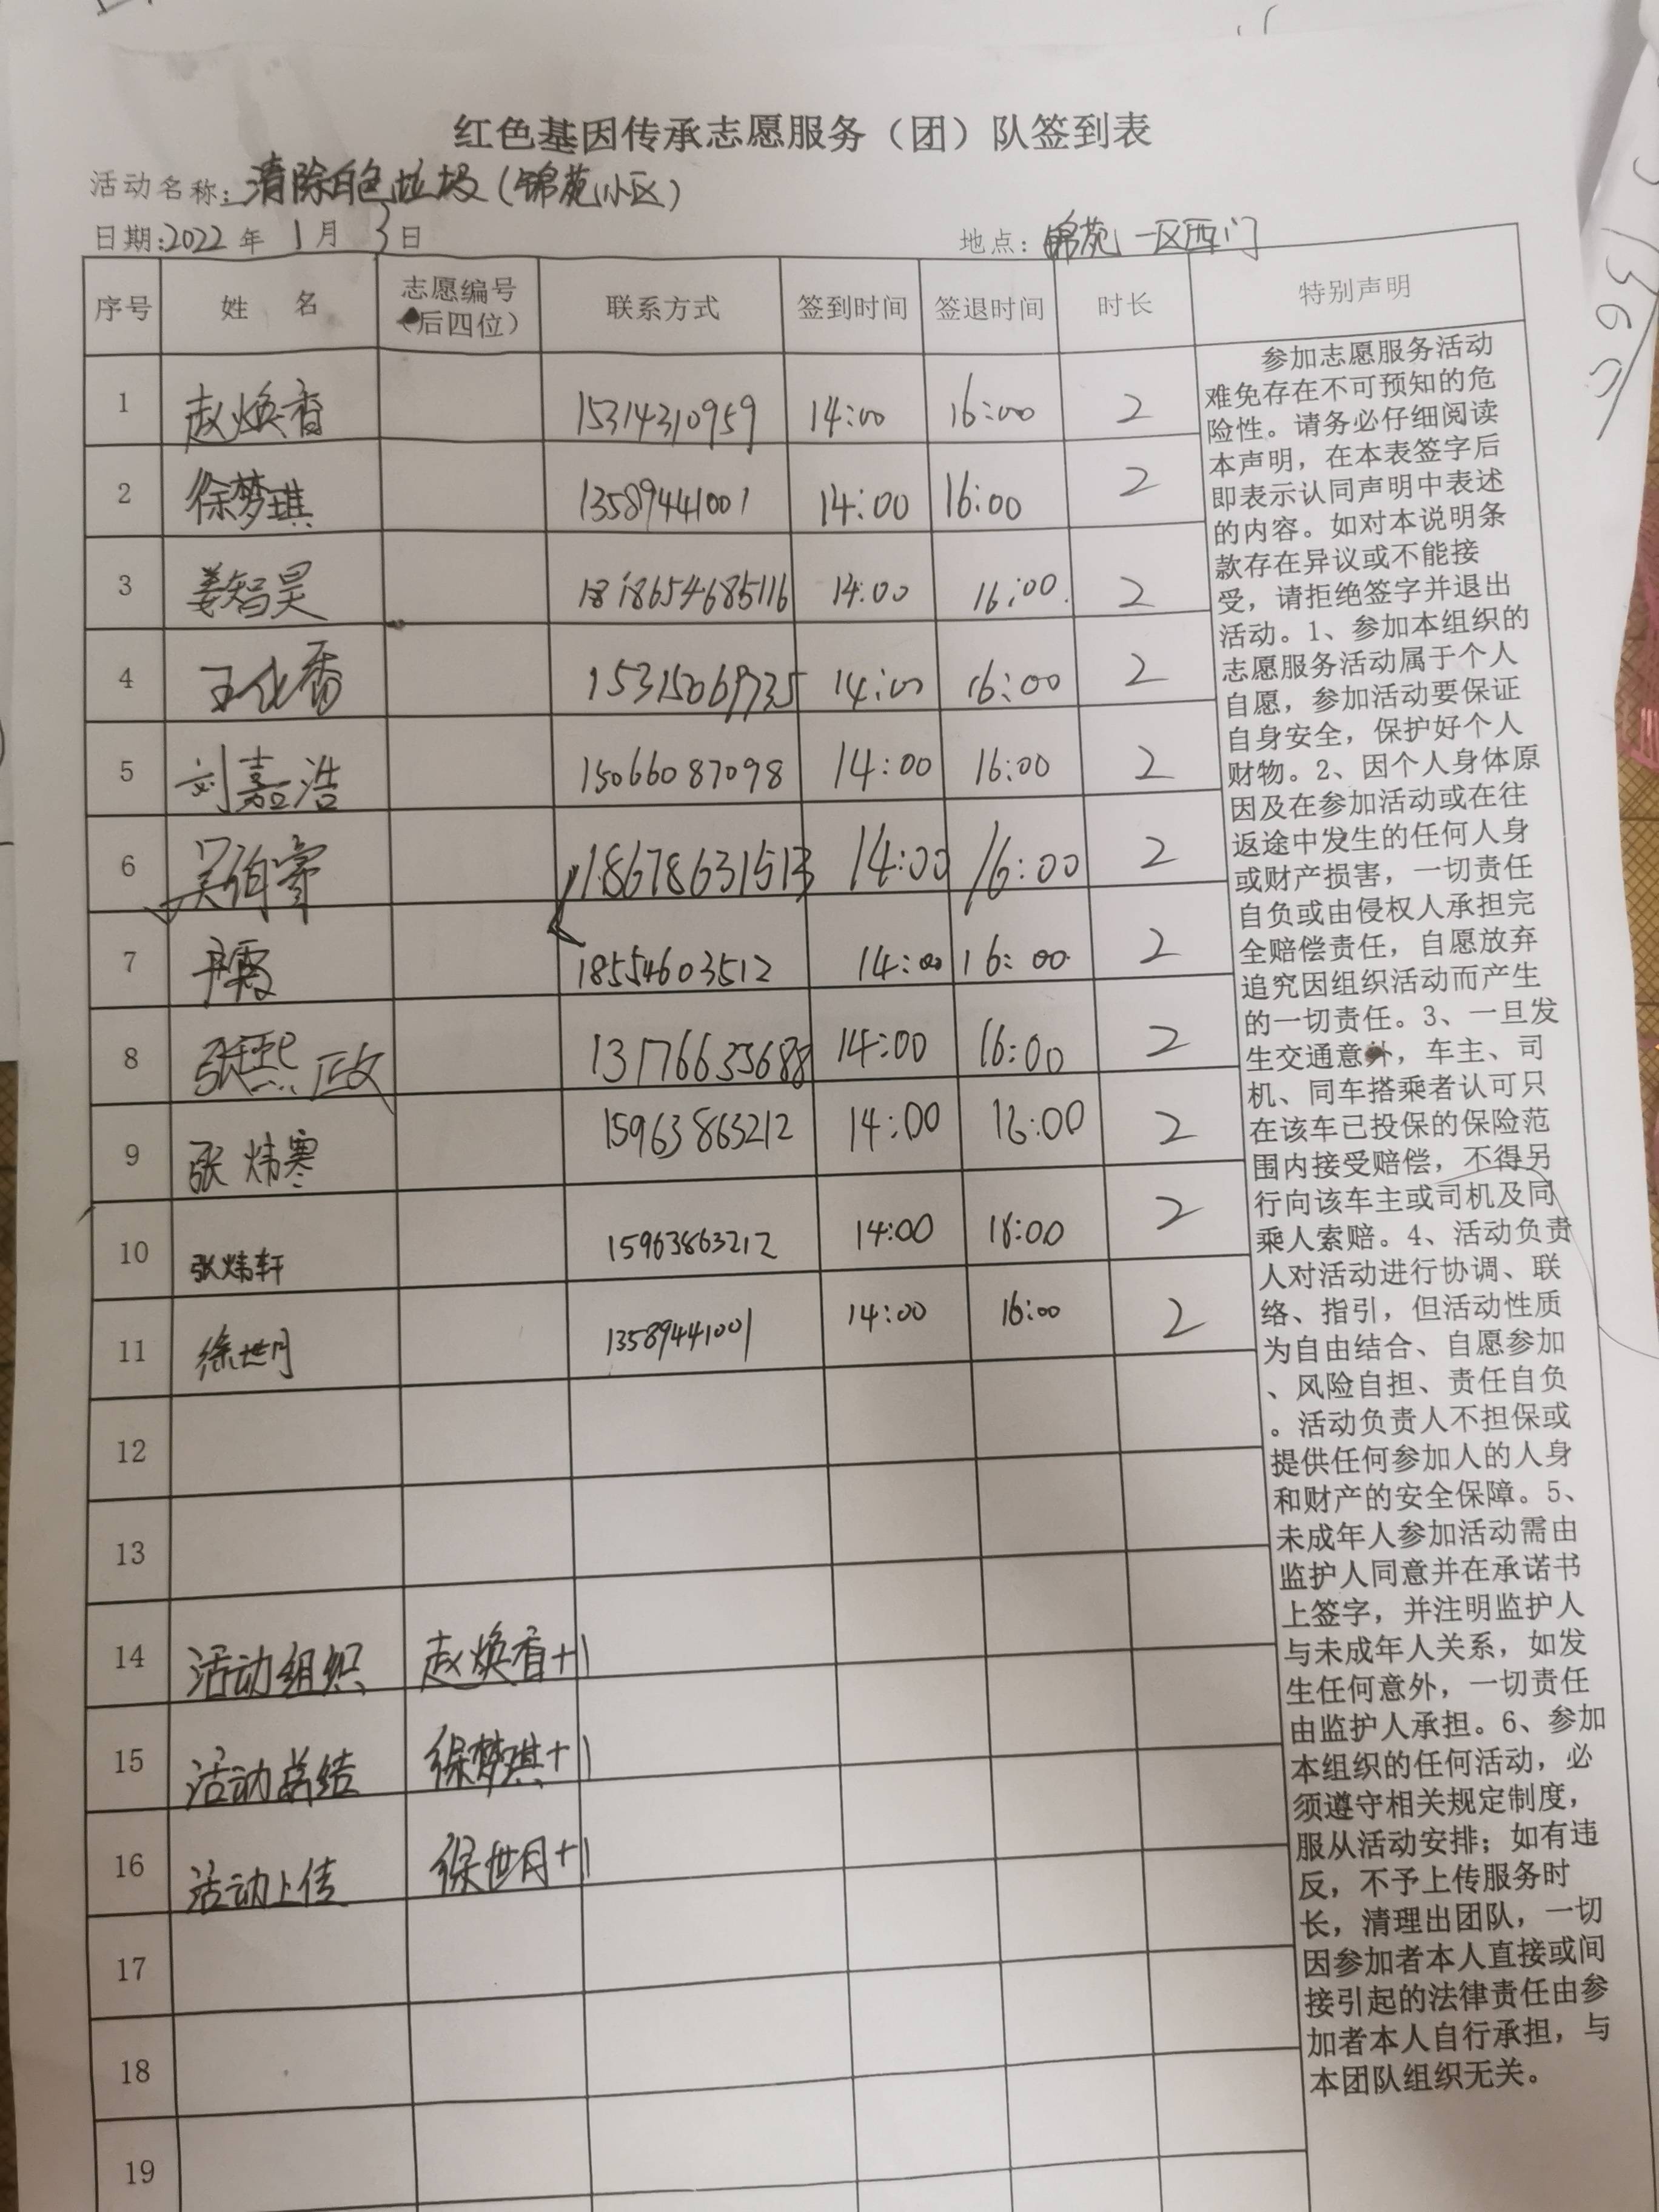 红色基因传承志愿服务（团）队签到表
活动名称：清除白色垃圾（锦苑小区）
日期：2022年 1月 3日 地点：锦苑一区西门
序号 姓 名 志愿编号（后四位） 联系方式 签到时间 签退时间 时长 特别声明
1 赵焕香 15314310959 14:00 16:00 2
2 徐梦琪 13589441001 14:00 16:00 2
3 姜智昊 14:00 16:00 2
4 王化香 14:00 16:00 2
5 刘嘉浩 15066087098 14:00 16:00 2
6 18678631513 14:00 16:00 2
7 18554603512 14:00 16:00 2
8 张熙政 14:00 16:00 2
9 张炜寒 15963863212 14:00 16:00 2
10 张炜轩 15963863212 14:00 16:00 2
11 徐世月 13589441001 14:00 16:00 2
12
13
14 活动组织 赵焕香+1
15 活动总结 徐梦琪+1
16 活动上传 徐世月+1
17
18
19
参加志愿服务活动
难免存在不可预知的危
险性。请务必仔细阅读
本声明，在本表签字后
即表示认同声明中表述
的内容。如对本说明条
款存在异议或不能接
受，请拒绝签字并退出
活动。1、参加本组织的
志愿服务活动属于个人
自愿，参加活动要保证
自身安全，保护好个人
财物。2、因个人身体原
因及在参加活动或在往
返途中发生的任何人身
或财产损害，一切责任
自负或由侵权人承担完
全赔偿责任，自愿放弃
追究因组织活动而产生
的一切责任。3、一旦发
生交通意外，车主、司
机、同车搭乘者认可只
在该车已投保的保险范
围内接受赔偿，不得另
行向该车主或司机及同
乘人索赔。4、活动负责
人对活动进行协调、联
络、指引，但活动性质
为自由结合、自愿参加
、风险自担、责任自负
。活动负责人不担保或
提供任何参加人的人身
和财产的安全保障。5、
未成年人参加活动需由
监护人同意并在承诺书
上签字，并注明监护人
与未成年人关系，如发
生任何意外，一切责任
由监护人承担。6、参加
本组织的任何活动，必
须遵守相关规定制度，
服从活动安排；如有违
反，不予上传服务时
长，清理出团队，一切
因参加者本人直接或间
接引起的法律责任由参
加者本人自行承担，与
本团队组织无关。